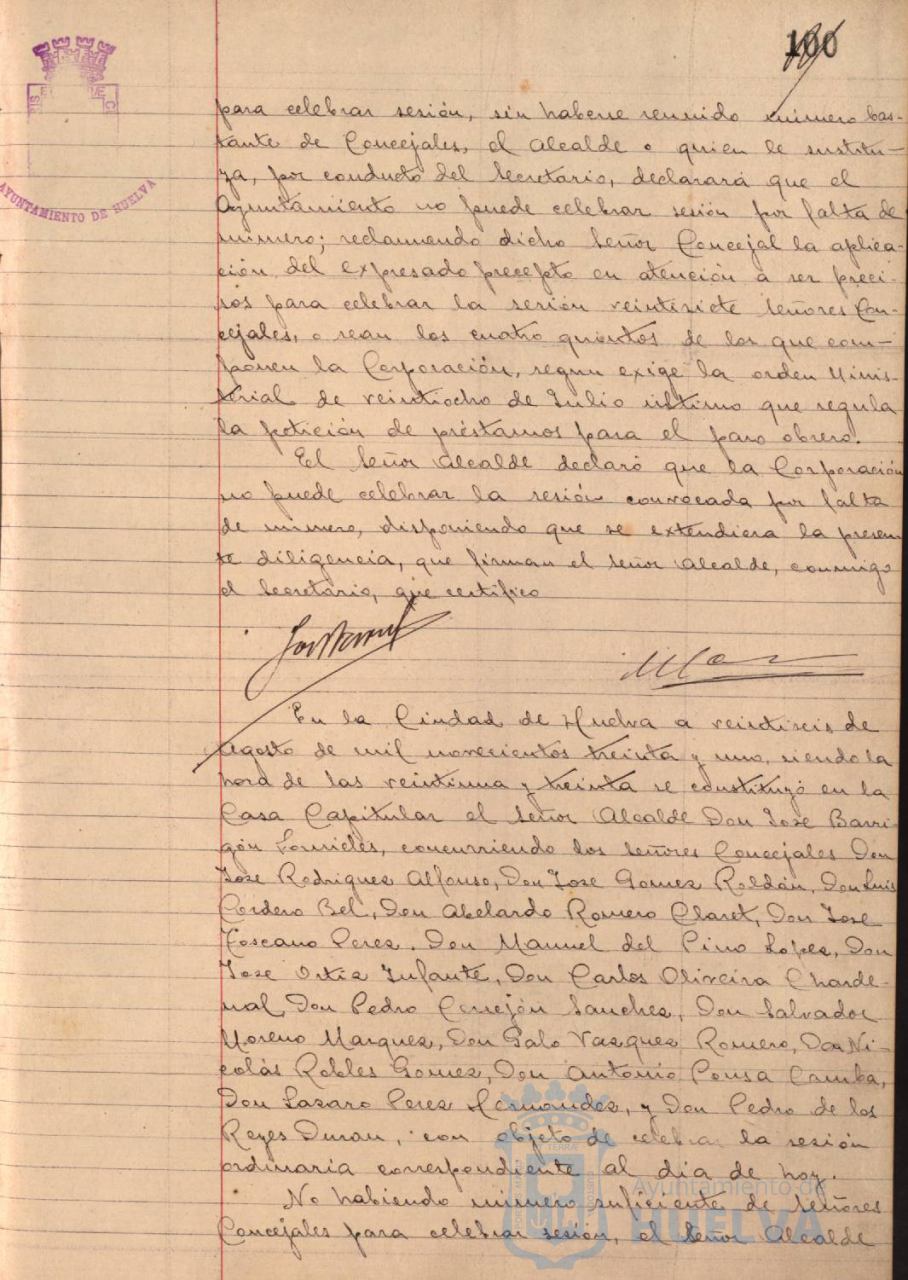 100
AYUNTAMIENTO DE HUELVA
para celebrar sesión, sin haberse reunido número bas-
tante de Concejales, el Alcalde o quien le sustitu-
ya, por conducto del Secretario, declarará que el
Ayuntamiento no puede celebrar sesión por falta de
número; reclamando dicho Señor Concejal la aplica-
ción del expresado precepto en atención a ser preci-
sos para celebrar la sesión veintisiete Señores Con-
cejales, o sean los cuatro quintos de los que com-
ponen la Corporación, segun exige la orden Minis-
terial de veintiocho de Julio último que regula
la petición de préstamos para el paro obrero.
El Señor Alcalde declaró que la Corporación
no puede celebrar la sesión convocada por falta
de número, disponiendo que se extendiera la presen-
te diligencia, que firman el Señor Alcalde, conmigo
el Secretario, que certifico
En la Ciudad de Huelva a veintiseis de
Agosto de mil novecientos treinta y uno, siendo la
hora de las veintiuna y treinta se constituyó en la
Casa Capitular el Señor Alcalde Don Jose Barri-
gón Fornieles, concurriendo los Señores Concejales Don
Jose Rodriguez Alfonso, Don Jose Gomez Roldán, Don Luis
Cordero Bel, Don Abelardo Romero Claret, Don Jose
Toscano Perez. Don Manuel del Pino Lopez, Don
Jose Ortiz Infante, Don Carlos Oliveira Charde-
nal, Don Pedro Cerrejón Sanchez, Don Salvador
Moreno Marquez, Don Galo Vazquez Romero, Don Ni-
colás Robles Gomez, Don Antonio Pousa Camba,
Don Lazaro Perez Hernandez, y Don Pedro de los
Reyes Duran, con objeto de celebrar la sesión
ordinaria correspondiente al día de hoy.
No habiendo número suficiente de Señores
Concejales para celebrar sesión, el Señor Alcalde
Ayuntamiento de
HUELVA